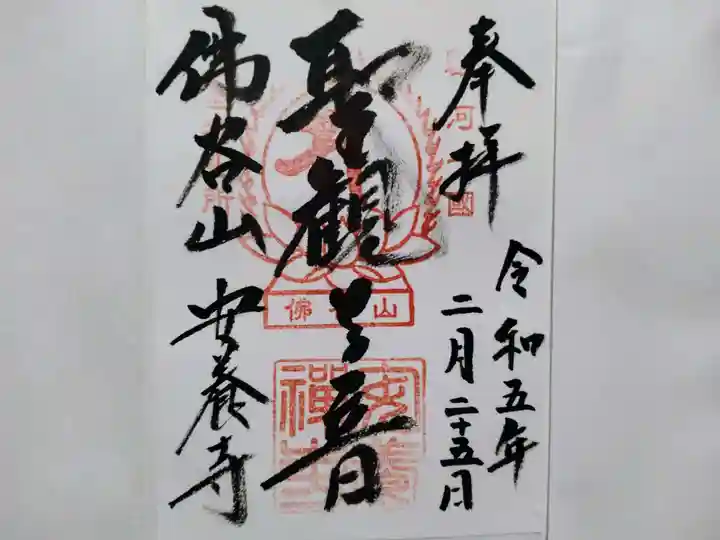 奉拝
令和五年
二月二十五日
聖観世音
佛谷山 安養寺
河國
所
山谷佛